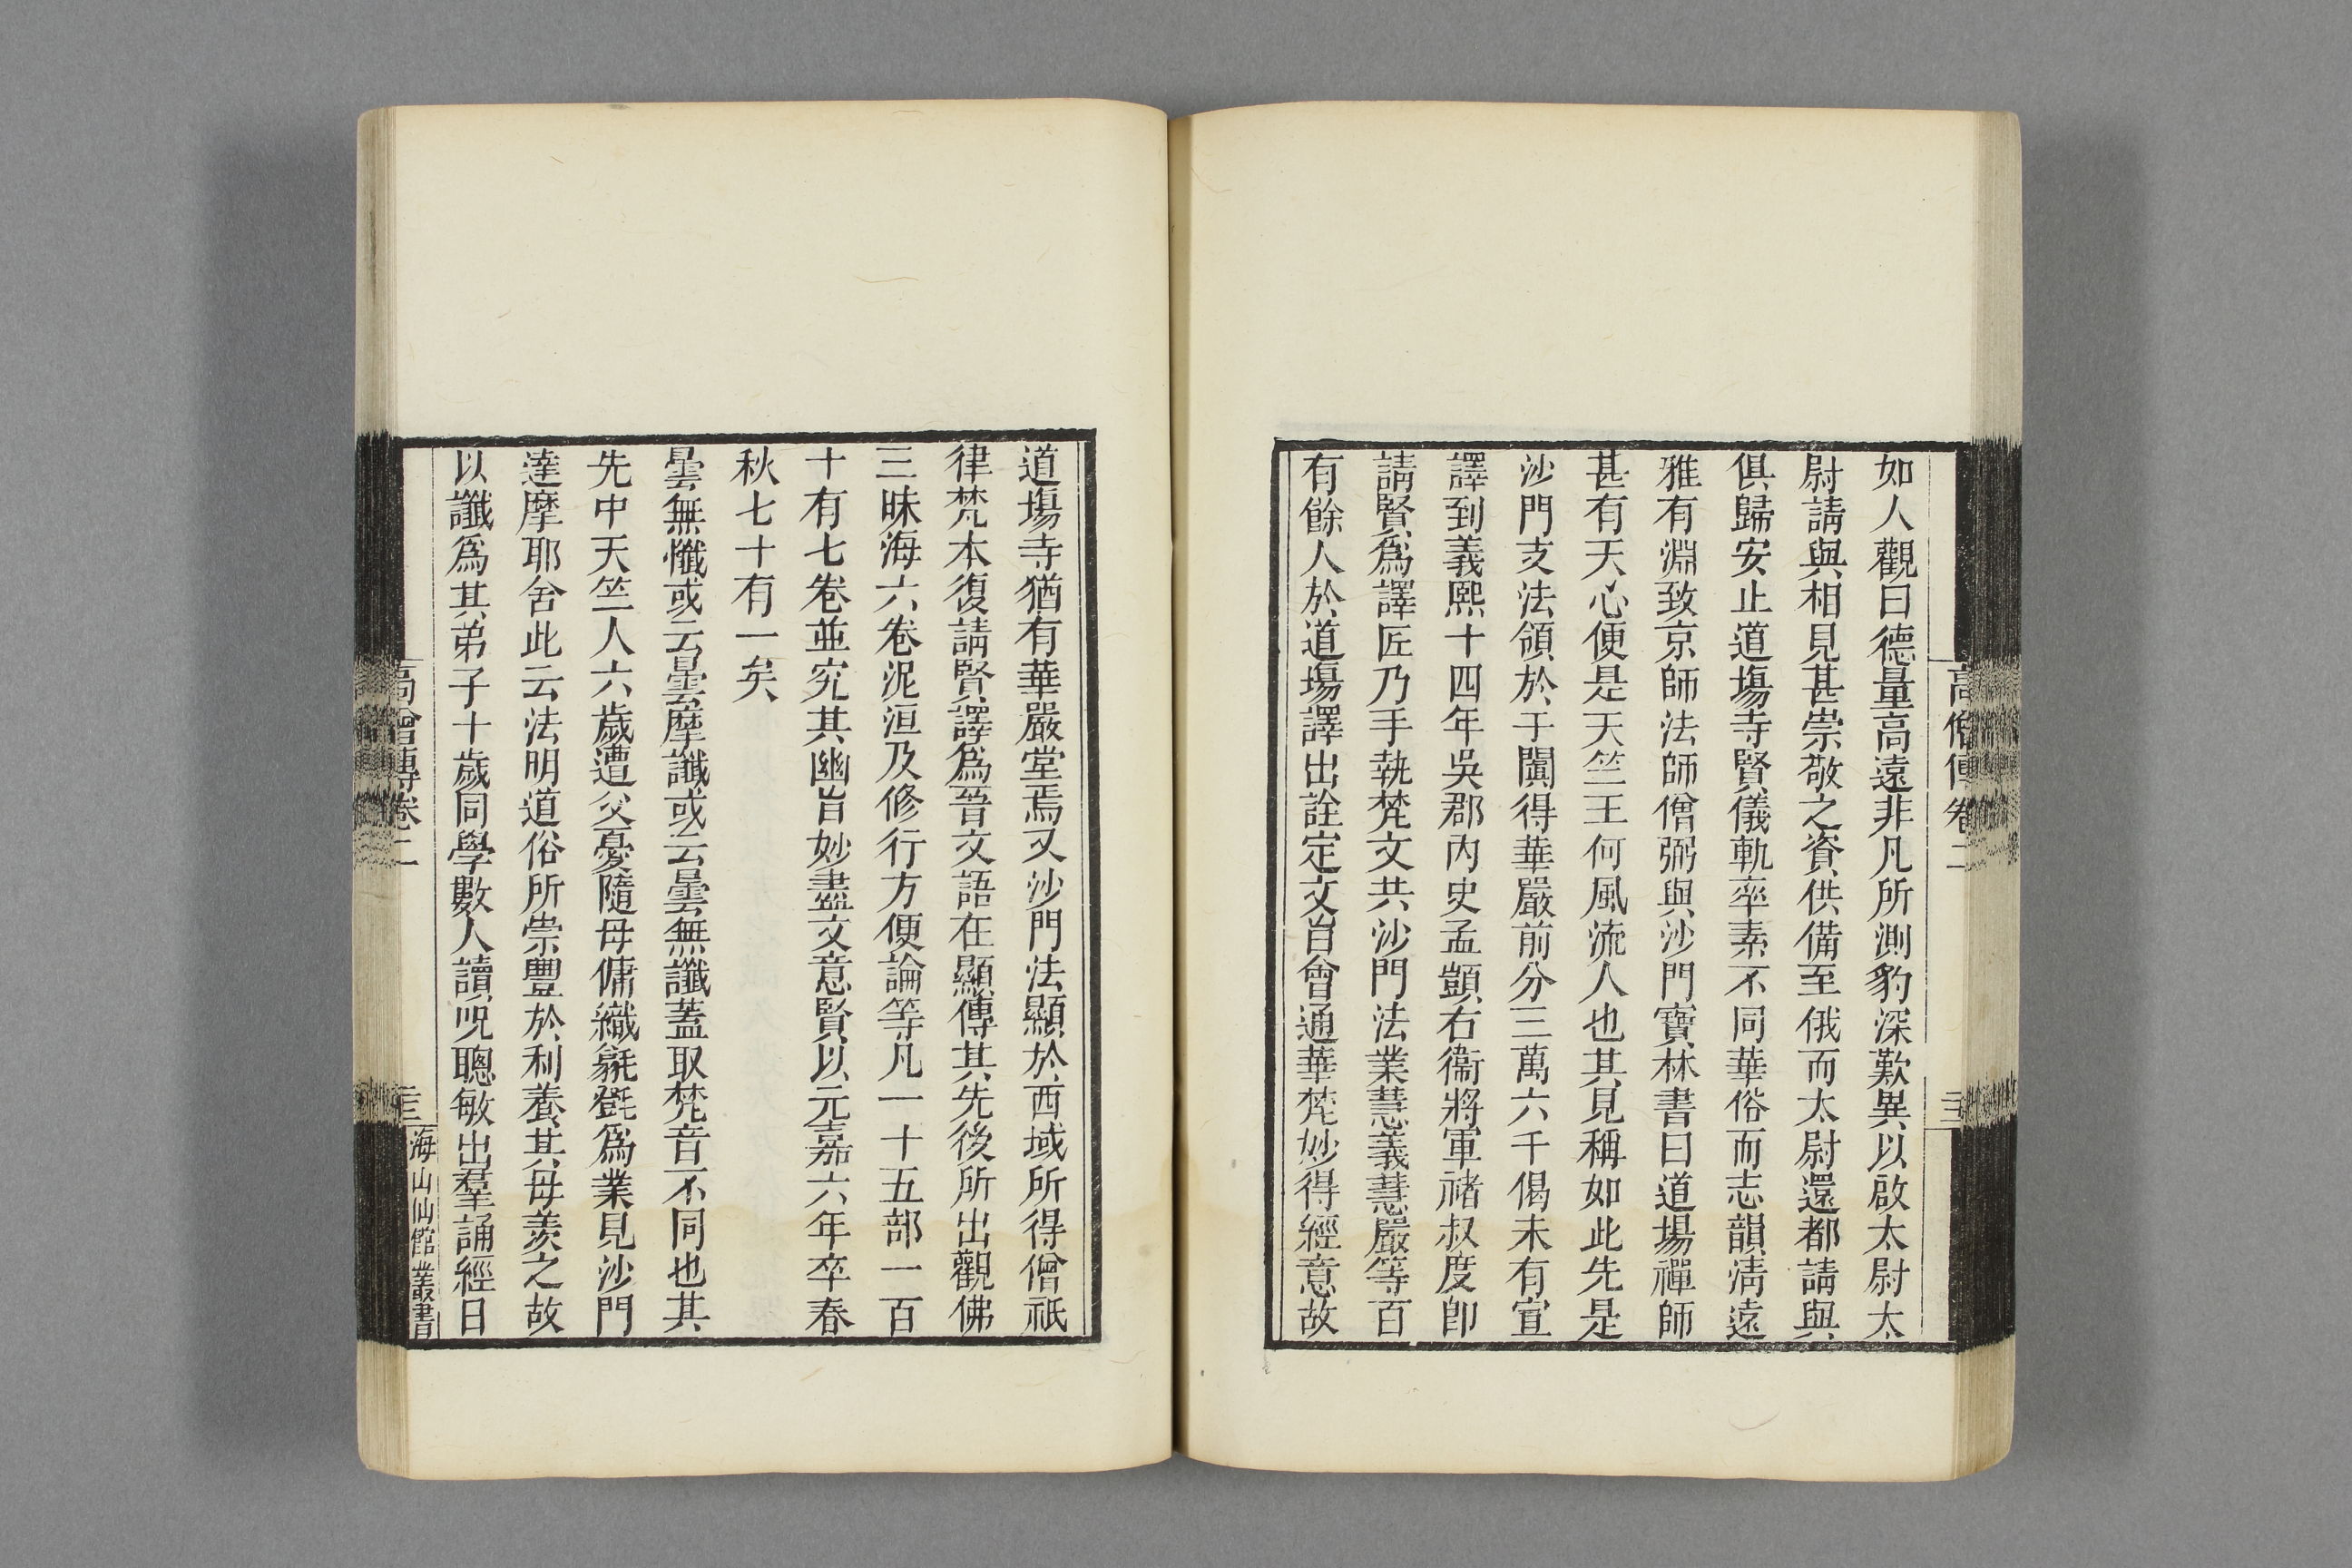 高僧傳卷二
如人觀曰德量高遠非凡所測豹深歎異以啟太尉太
尉請與相見甚崇敬之資供備至俄而太尉還都請與
俱歸安止道塲寺賢儀軌率素不同華俗而志韻淸遠
雅有淵致京師法師僧弼與沙門寶林書曰道場禪師
甚有天心便是天竺王何風流人也其見稱如此先是
沙門支法領於于闐得華嚴前分三萬六千偈未有宣
譯到義熙十四年吳郡內史孟顗右衞將軍禇叔度卽
請賢爲譯匠乃手執梵文共沙門法業慧義慧嚴等百
有餘人於道塲譯出詮定文旨會通華梵妙得經意故
道塲寺猶有華嚴堂焉又沙門法顯於西域所得僧祇
律梵本復請賢譯爲晉文語在顯傳其先後所出觀佛
三昧海六卷泥洹及修行方便論等凡一十五部一百
十有七卷並究其幽旨妙盡文意賢以元嘉六年卒春
秋七十有一矣
曇無懺或云曇摩讖或云曇無讖蓋取梵音不同也其
先中天竺人六歲遭父憂隨母傭織毾㲪爲業見沙門
達摩耶舍此云法明道俗所崇豐於利養其母羨之故
以讖爲其弟子十歲同學數人讀呪聰敏出羣誦經日
高僧傳卷二
海山仙館叢書